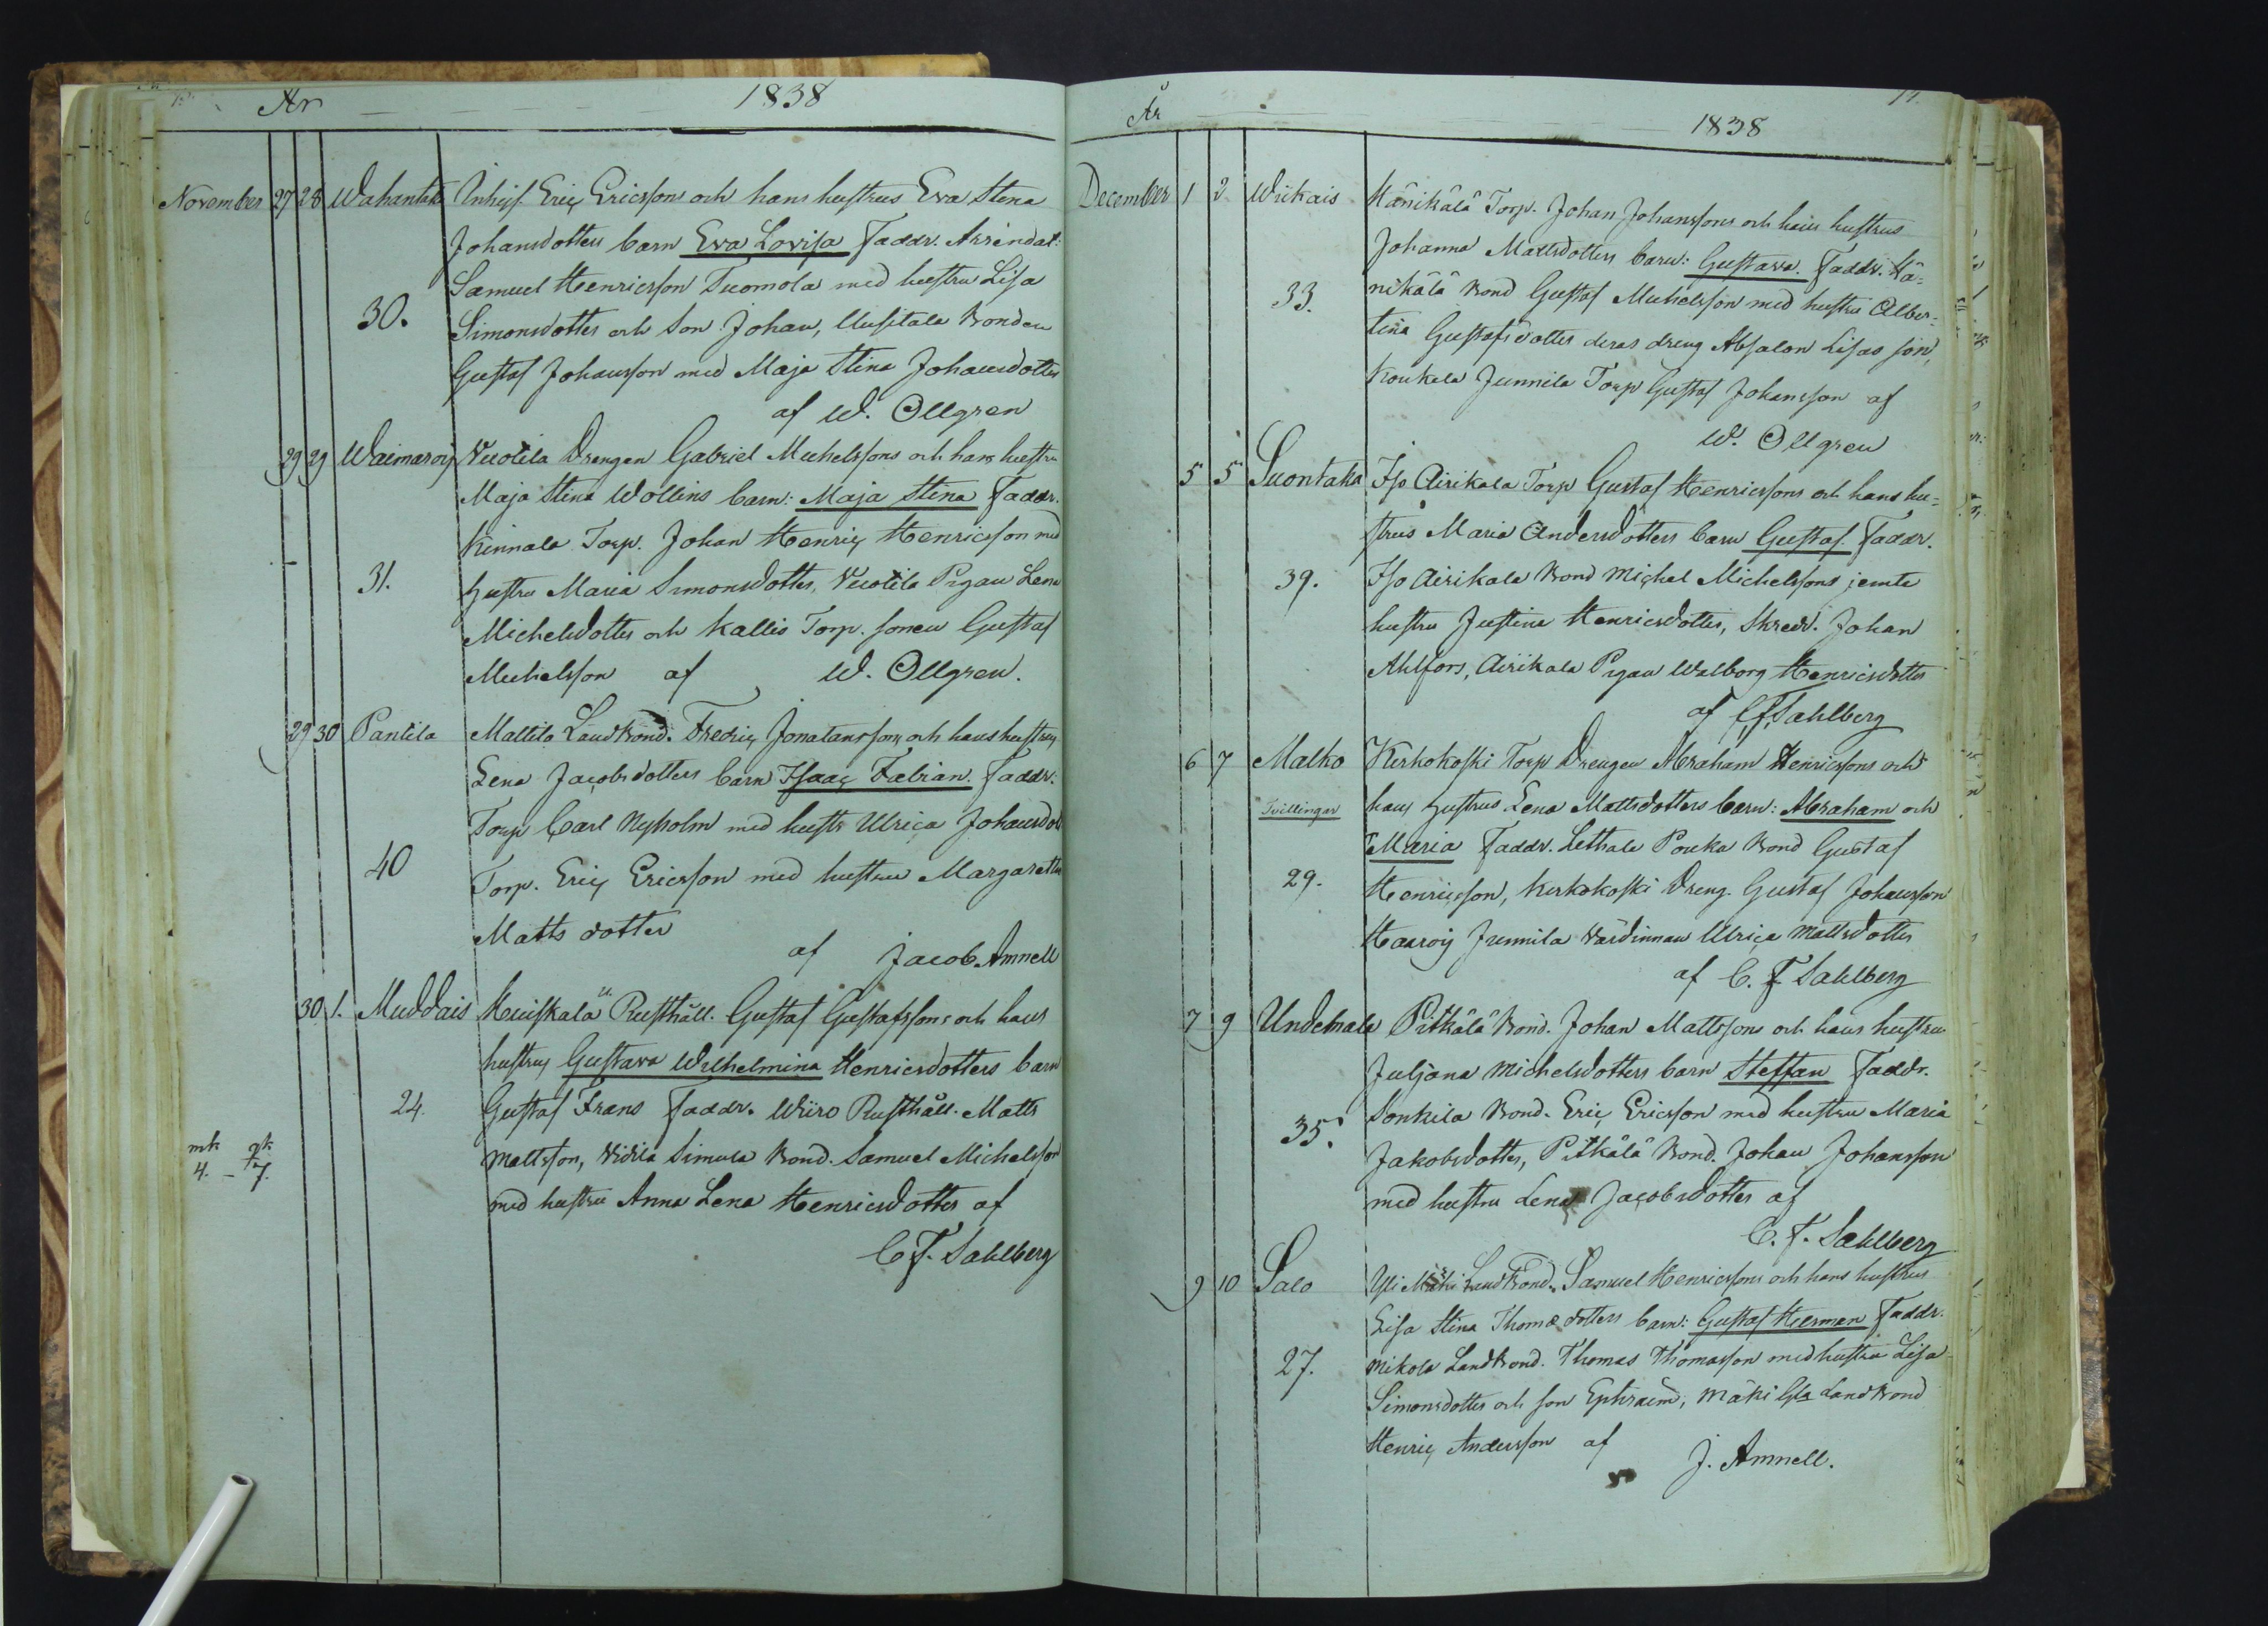 År 1838
November 27 28 Wahantak Inhys. Eric Ericssons och hans hustrus Eva Stina
Johansdotters barn Eva Lovisa Faddr. Arrendat:
Samuel Henricsson Tuomola med hustru Lisa
30. Simonsdotter och Son Johan, Uusitalo Bonden
Gustaf Johansson med Maja Stina Johansdotter
af W. Ollgren
29 29 Waimaroij Drengen Gabriel Michelssons och hans hustru
Maja Stina Wollins barn: Maja Stina Faddr.
Kinnala Torp. Johan Henric Henricsson med
31. hustru Maria Simonsdotter, Pigan Lena
Michelsdotter och Kallis Torp. sonen Gustaf
Michelsson af W. Ollgren.
29 30 Pantila Mattila Landbond. Fredric Jonatanssons och hans hustrus
Lena Jacobsdotters barn Isaac Fabian. Faddr:
Torp Carl Nyholm med hustr Ulrica Johansdott
40 Torp. Eric Ericsson med hustru Margaretha
Matts dotter
af Jacob Amnell
30 1. Muddais Huiskala Rusthåll. Gustaf Gustafssons och hans
hustrus Gustava Wilhelmina Henricsdotters barn
24. Gustaf Frans Faddr. Wiiro Rusthåll. Matts
Mattsson, Simula Bond. Samuel Michelsson
mk
4. - 7.
med hustru Anna Lena Henricsdotter af
C F. Sahlberg
År 1838
December 1 2 Wiikais Hänikälä Torp. Johan Johanssons och hans hustrus
Johanna Mattsdotters barn: Gustava. Faddr. Hä-
33. nikälä Bond Gustaf Michelsson med hustru Alber-
tina Gustafsdotter deras dreng Absalon Lisas son,
Koukala Junnila Torp Gustaf Johansson af
W. Ollgren
5 5 Suontaka Iso Airikala Torp Gustaf Henricssons och hans hu-
strus Maria Andersdotters barn Gustaf. Faddr.
39. Iso Airikala Bond Michel Michelssons jemte
hustru Justina Henricsdotter, Skredd. Johan
Ahlfors, Airikala Pigan Walborg Henricsdotter
af C. F. Sahlberg
6 7 Malko Kirkokoski Torp Drengen Abraham Henricssons och
Tvillingar hans hustrus Lena Mattsdotters barn: Abraham och
Maria Faddr. Lethala Pouka Bond Gustaf
29. Henricsson, Kirkokoski Dreng. Gustaf Johansson
Haaroij Junnila Värdinnan Ulrica Mattsdotter
af C. F Sahlberg
7 9 Undemala Pitkälä Bond. Johan Mattssons och hans hustru
Juljana Michelsdotters barn Steffan Faddr.
35. Sonkila Bond. Eric Ericsson med hustru Maria
Jakobsdotter, Pitkälä Bond. Johan Johansson
med hustru Lena Jacobsdotter af
C. F. Sahlberg
9 10 Salo Yli Mäki Landbond. Samuel Henricssons och hans hustrus
Lisa Stina Thomædotters barn: Gustaf Herman Faddr.
27. Mikola Landbond. Thomas Thomasson med hustru Lisa
Simonsdotter och son Ephraim, Mäki Landbond
Henric Andersson af J. Amnell.